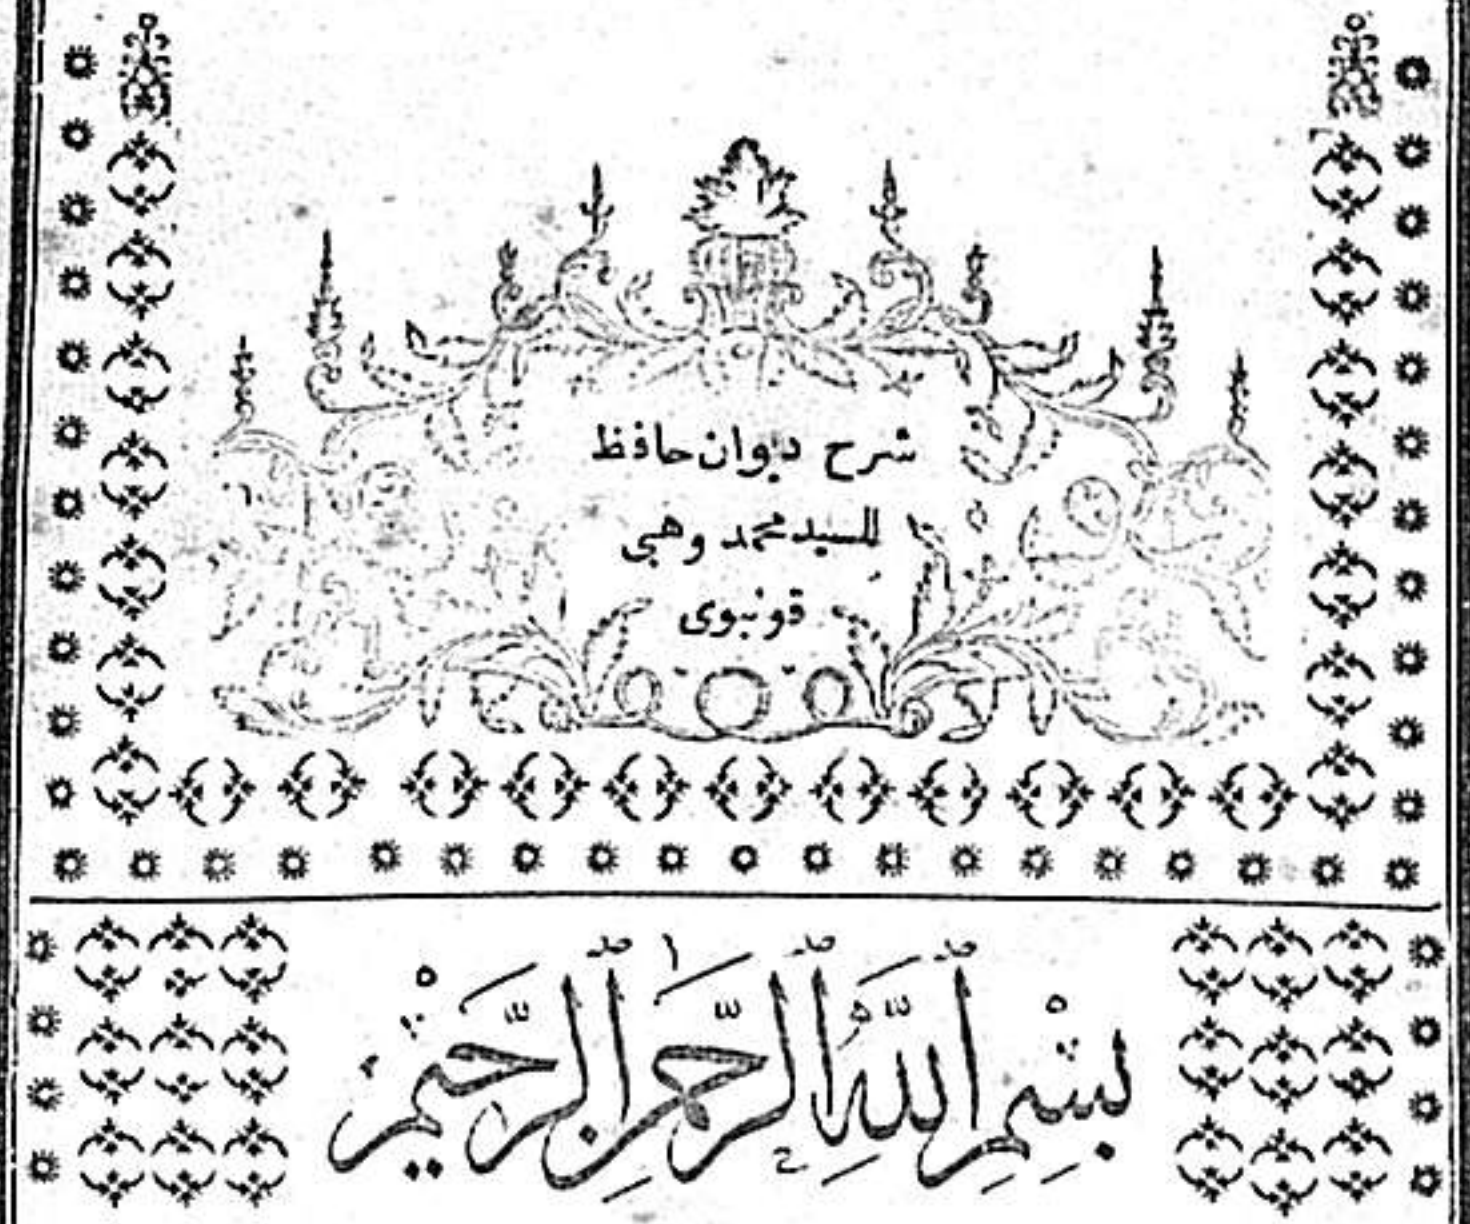 شرح ديوان حافظ
للسيد محمد وهبى
قونيوى
بِسْمِ ٱللَّهِ ٱلرَّحْمٰنِ ٱلرَّحِيمِ